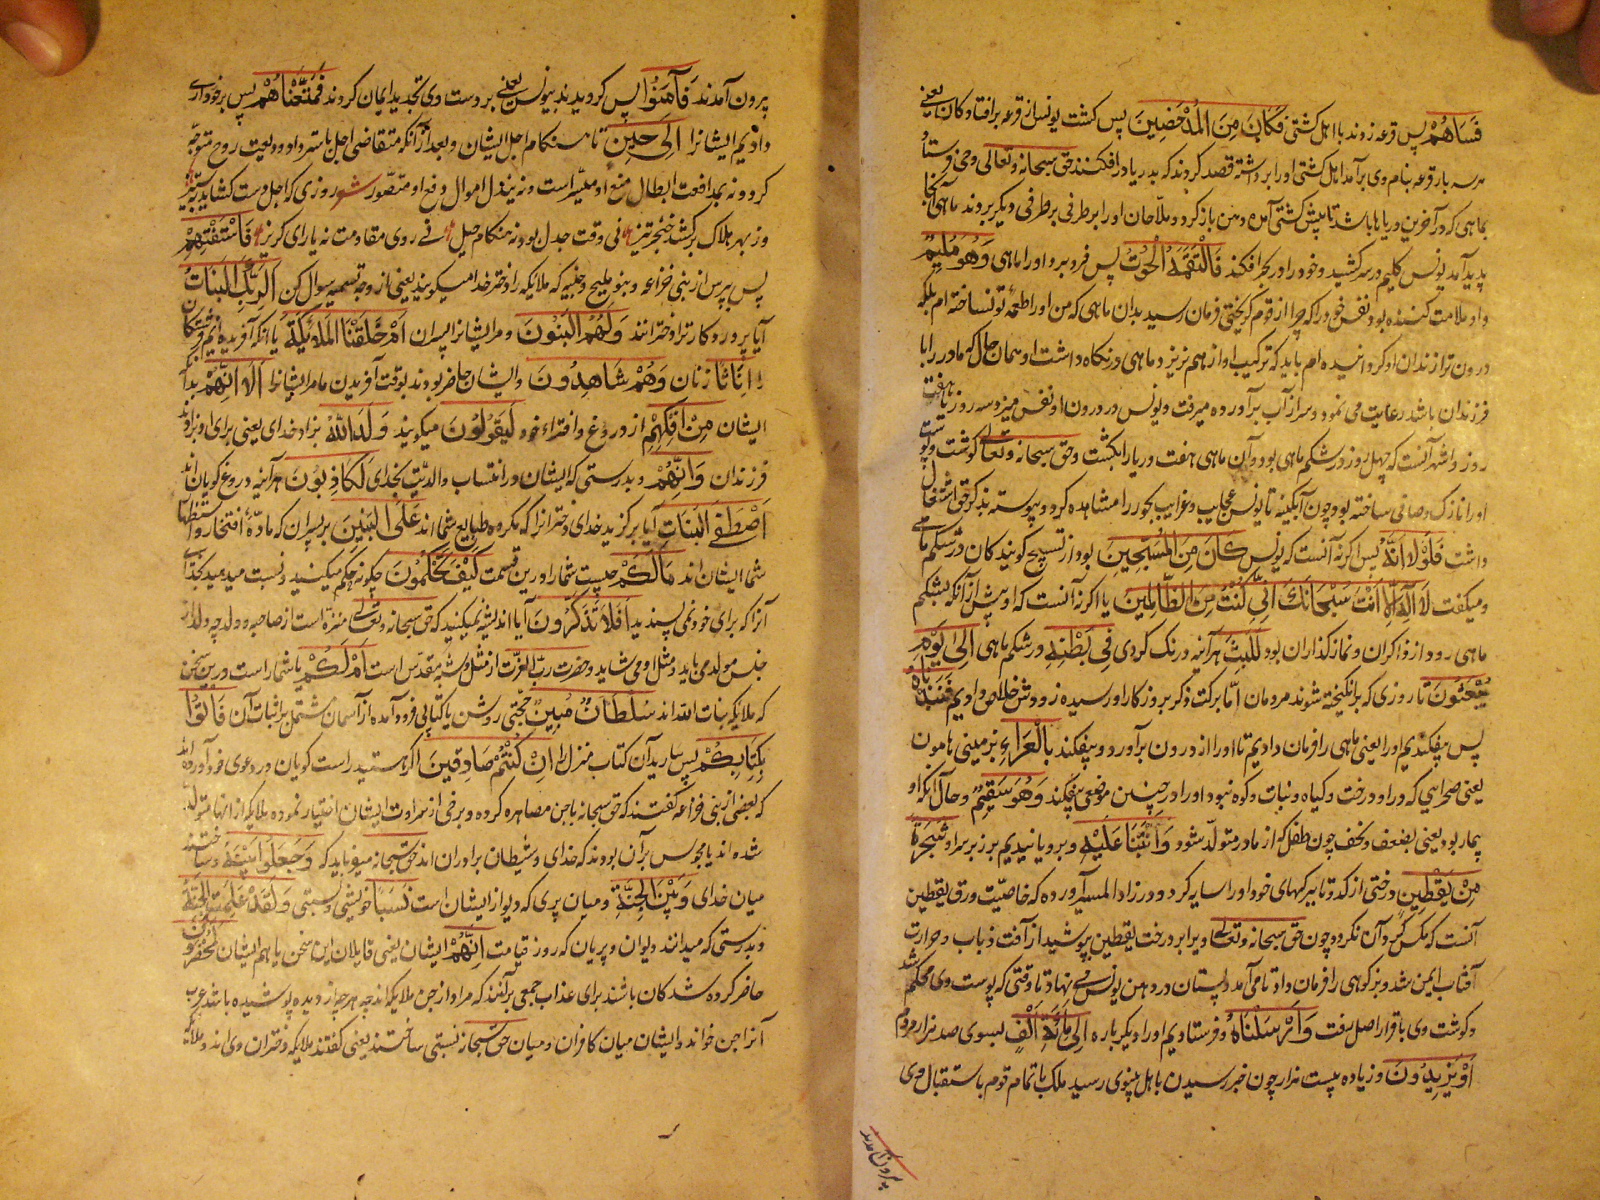 فَسَاهَمَ پس قرعه زدند با اهل کشتی فَكَانَ مِنَ الْمُدْحَضِينَ پس گشت یونس از قرعه برافتادگان یعنی
سه بار قرعه بنام وی برآمد اهل کشتی او را برداشته قصد کردند که بدریا درافکنند حق سبحانه وتعالی وحی فرستاد
بماهی که در آخرین دریاها باشد تا پیش کشتی آمده دهن باز کرد و ملاحان او را بهر طرفی بر طرفی دیگر بردند ماهی آنجا
پدید آمد یونس گلیم در سر کشید و خود را در بحر افکند فَالْتَقَمَهُ الْحُوتُ پس فرو برد او را ماهی وَهُوَ مُلِيمٌ
و او ملامت کننده بود نفس خود را که چرا از قوم گریختی فرمان رسید بدان ماهی که من او را طعمهٔ تو نساخته ام بلکه
درون ترا زندان او گردانیده ام باید که ترکیب او از هم نریزد و ماهی در نگاه داشت او همان حال که مادر را با
فرزندان باشد رعایت می نمود و سر از آب برآورده میرفت و یونس در درون او نفس میزد سه روز یا هفت
روز و اشهر آنست که چهل روز در شکم ماهی بود و آن ماهی هفت دریا را بگشت و حق سبحانه وتعالی گوشت و پوست
او را نازک و صافی ساخته بود چون آبگینه تا یونس عجایب و غرایب بحور را مشاهده کرد و پیوسته بذکر حق اشتغال
داشت فَلَوْلَا أَنَّهُ پس اگر نه آنست که یونس كَانَ مِنَ الْمُسَبِّحِينَ بود از تسبیح گویندگان در شکم ماهی
و میگفت لَا إِلَهَ إِلَّا أَنْتَ سُبْحَانَكَ إِنِّي كُنْتُ مِنَ الظَّالِمِينَ یا اگر نه آنست که او پیش از آنکه بشکم
ماهی رود از ذاکران و نماز گذاران بود لَلَبِثَ هرآینه درنگ کردی فِي بَطْنِهِ در شکم ماهی إِلَى يَوْمِ
يُبْعَثُونَ تا روزی که برانگیخته شوند مردمان اما برکت ذکر بروزگار او رسیده زودش خلاص دادیم فَنَبَذْنَاهُ
پس بیفکندیم او را یعنی ماهی را فرمان دادیم تا او را از درون برآورد و بیفکند بِالْعَرَاءِ بزمینی هامون
یعنی صحرایی که در او درخت و گیاه و نبات و کوه نبود او را در چنین موضعی بیفکند وَهُوَ سَقِيمٌ و حال آنکه او
بیمار بود یعنی بضعف و نحف چون طفل که از مادر متولد شود وَأَنْبَتْنَا عَلَيْهِ و برویانیدیم بر زبر سر او شَجَرَةً
مِنْ يَقْطِينٍ درختی از کدو تا ببرگهای خود او را سایه کرد و در زاد المسیر آورده که خاصیّت ورق یقطین
آنست که مگس گرد آن نگردد چون حق سبحانه وتعالی ویرا بدرخت یقطین بپوشید از آفت ذباب و حرارت
آفتاب ایمن شد و بز کوهی را فرمان داد تا می آمد و پستان در دهن یونس می نهاد تا وقتی که پوست وی محکم شد
و گوشت وی باقرار اصل رفت وَأَرْسَلْنَاهُ و فرستادیم او را دیگر باره إِلَى مِائَةِ أَلْفٍ بسوی صد هزار مردم
أَوْ يَزِيدُونَ و زیاده بیست هزار چون خبر رسیدن باهل نینوی رسید ملک با تمام قوم باستقبال وی
بیرون آمدند
بیرون آمدند فَآمَنُوا پس گرویدند بیونس یعنی بر دست وی تجدید ایمان کردند فَمَتَّعْنَاهُمْ پس برخورداری
دادیم ایشانرا إِلَى حِينٍ تا هنگام اجل ایشان و بعد از آنکه متقاضی اجل باسترداد ودیعت روح متوجه
کردد نه بمدافعت ابطال منع او میسّر است و نه ببذل اموال دفع او متصوّر شعر روزی که اجل دست گشاید بستیز
وز بهر هلاک برکشد خنجر تیز نی وقت جدل بود نه هنگام حیل نی روی مقاومت نه یارای گریز فَاسْتَفْتِهِمْ
پس بپرس از بنی خزاعه و بنو ملیح و جهینه که ملائکه را دختر خدا میگویند یعنی از وجه قسمت سوال کن أَلِرَبِّكَ الْبَنَاتُ
آیا پروردگار ترا دخترانند وَلَهُمُ الْبَنُونَ و مر ایشانرا پسران أَمْ خَلَقْنَا الْمَلَائِكَةَ یا آنکه آفریده ایم فرشتگان
را إِنَاثًا زنان وَهُمْ شَاهِدُونَ و ایشان حاضر بودند بوقت آفریدن ما مر ایشانرا أَلَا إِنَّهُمْ بدانکه
ایشان مِنْ إِفْكِهِمْ از دروغ و افتراء خود لَيَقُولُونَ میگویند وَلَدَ اللَّهُ بزاد خدای یعنی برای او زاده اند
فرزندان وَإِنَّهُمْ و بدرستی که ایشان در انتساب والدیّت بخدای لَكَاذِبُونَ هرآینه دروغ گویان اند
أَصْطَفَى الْبَنَاتِ آیا برگزید خدای دخترانرا که مکروه طبایع شما اند عَلَى الْبَنِينَ بر پسران که مادّهٔ افتخار و استظهار
شما ایشان اند مَا لَكُمْ چیست شما را درین قسمت كَيْفَ تَحْكُمُونَ چگونه حکم میکنید و نسبت میدهید بخدای
آنرا که برای خود نمی پسندید أَفَلَا تَذَكَّرُونَ آیا اندیشه نمیکنید که حق سبحانه وتعالی منزه است از صاحبه و ولد چه ولد از
جنس مولد می باید و مثل او می شاید و حضرت ربّ العزّت از مثل و شبه مقدّس است أَمْ لَكُمْ یا شما راست درین سخن
که ملائکه بنات الله اند سُلْطَانٌ مُبِينٌ حجّتی روشن یا کتابی فرود آمده از آسمان مشتمل بر اثبات آن فَأْتُوا
بِكِتَابِكُمْ پس بیارید آن کتاب منزل را إِنْ كُنْتُمْ صَادِقِينَ اگر هستید راست گویان در دعوی خود آورده اند
که بعضی از بنی خزاعه گفتند که حق سبحانه با جن مصاهره کرده و برخی از سروات ایشان اختیار نموده ملائکه از آنها متولد
شده اند یا مجوس بر آن بودند که خدای و شیطان برادران اند حق سبحانه میفرماید که وَجَعَلُوا بَيْنَهُ و ساختند
میان خدای وَبَيْنَ الْجِنَّةِ و میان پری که دیو از ایشان است نَسَبًا خویشی و نسبتی وَلَقَدْ عَلِمَتِ الْجِنَّةُ
و بدرستی که میدانند دیوان و پریان که روز قیامت إِنَّهُمْ ایشان یعنی قایلان این سخن یا هم ایشان لَمُحْضَرُونَ
حاضر کرده شدگان باشند برای عذاب جمعی برآنند که مراد از جن ملائکه اند چه هر چه از دیده پوشیده باشد عرب
آنرا جن خواند و ایشان میان کافران و میان حق سبحانه نسبتی ساختند یعنی گفتند ملائکه دختران وی اند و ملائکه